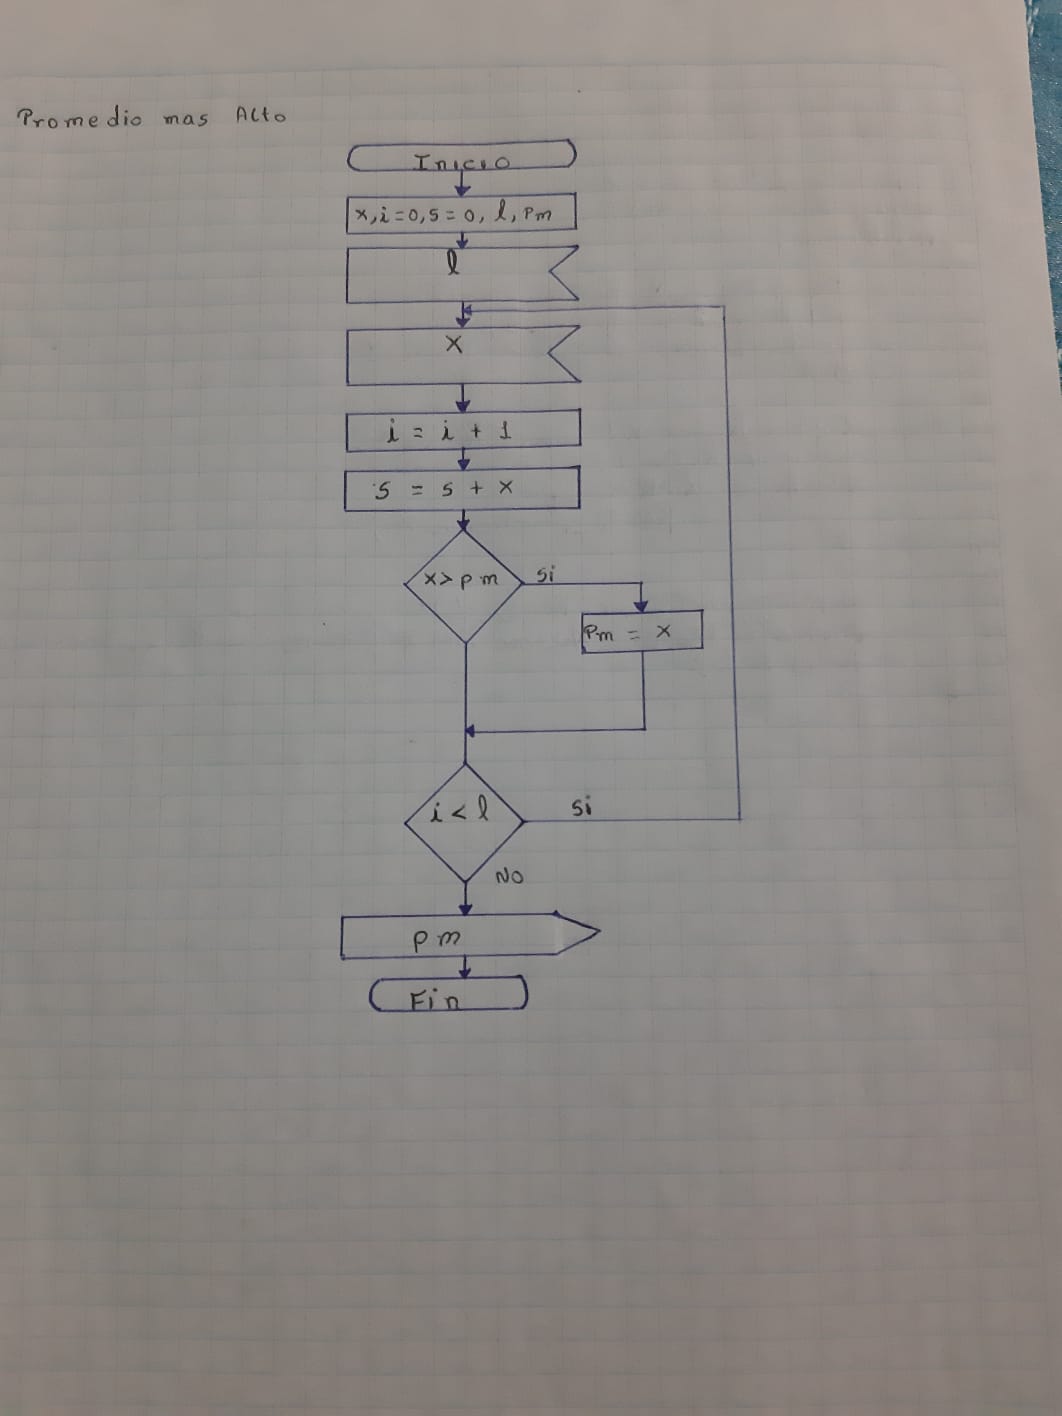 Promedio mas Alto
Inicio
x, i=0, s=0, l, pm
l
x
i = i + 1
s = s + x
x > pm
si
Pm = x
i < l
si
No
pm
Fin